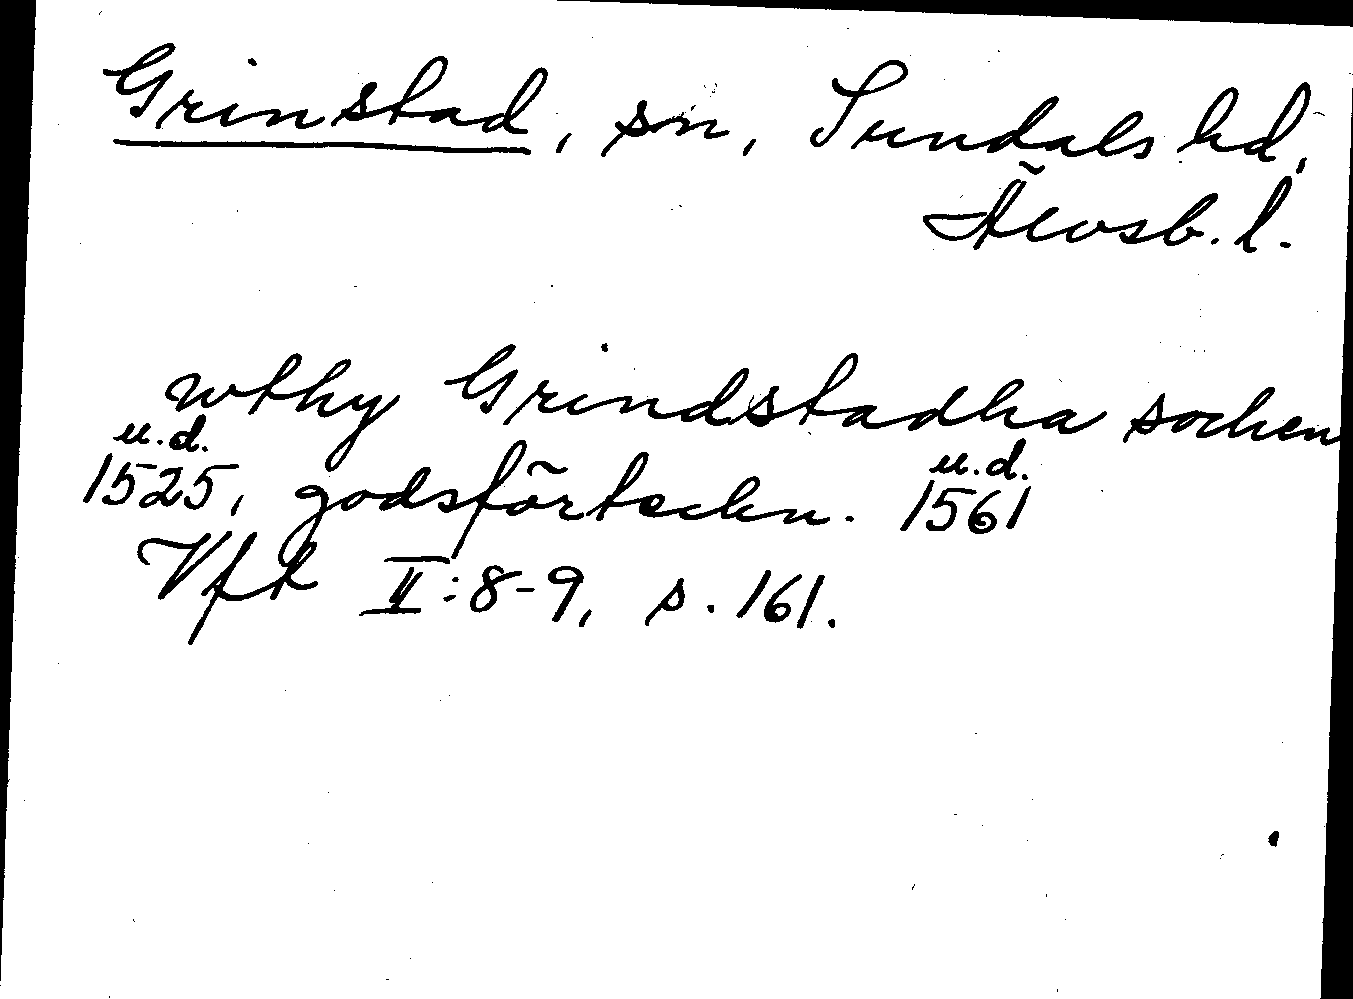 Grinstad, sn, Sundals hd,
Älvsb. l.
wthy Grindstadha sochen
u.d. u.d.
1525, godsförteckn. 1561
Vfk II:8-9, s. 161.